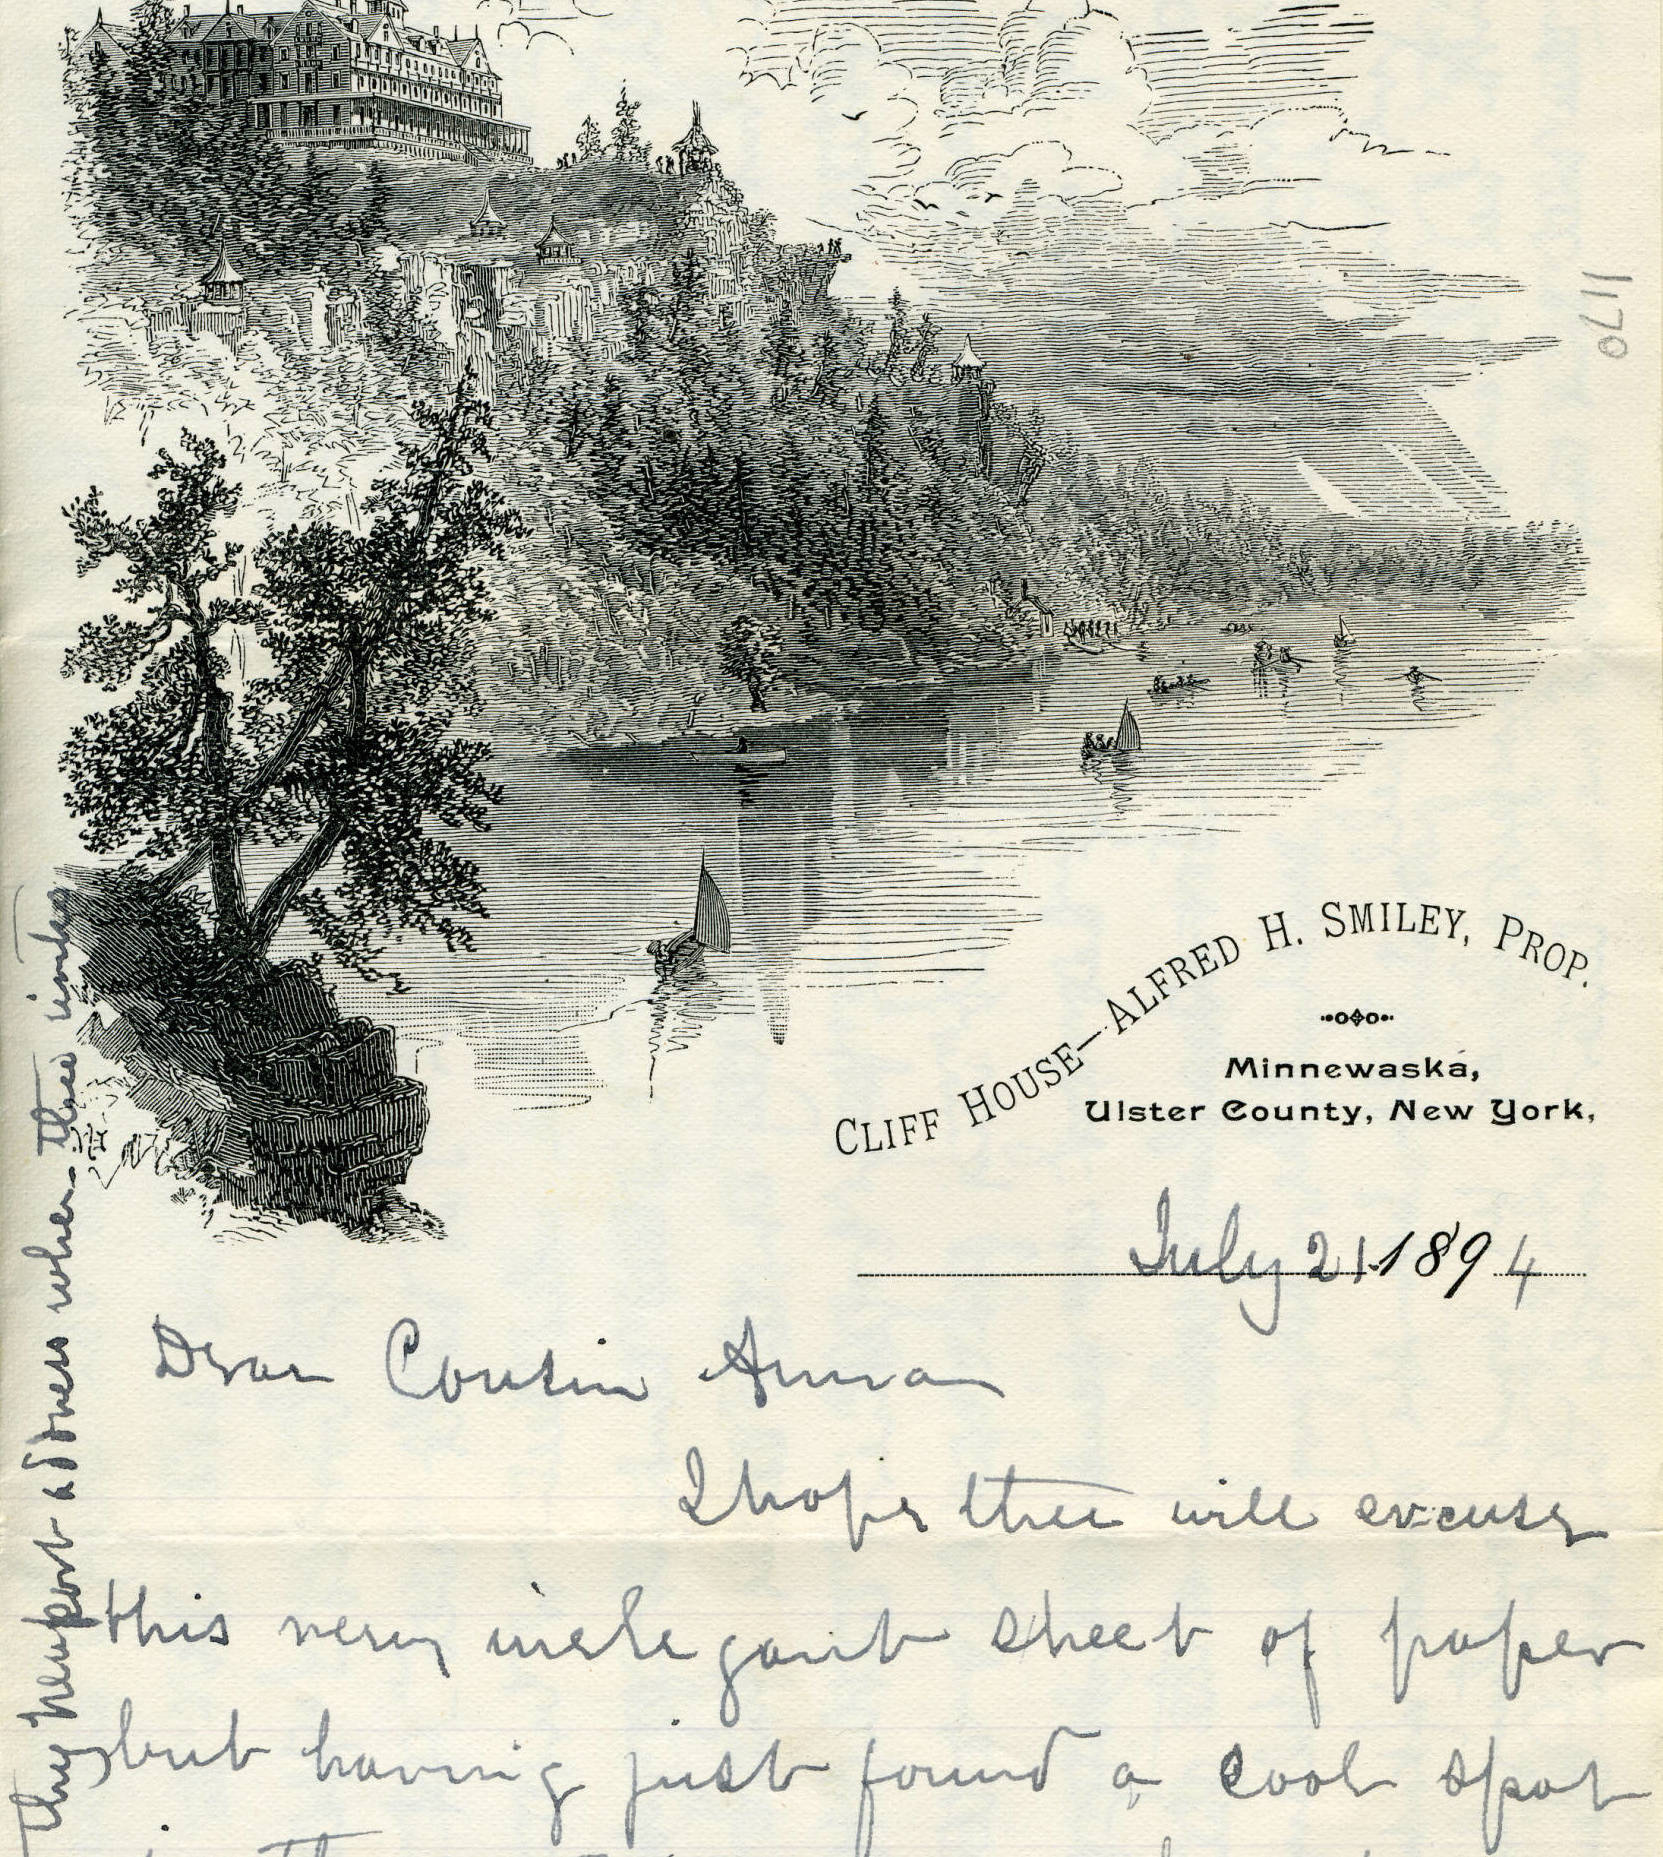 1170
CLIFF HOUSE—ALFRED H. SMILEY, PROP.
Minnewaska,
Ulster County, New York,
July 21. 1894
Dear Cousin Anna
I hope thee will excuse
this very inelegant sheet of paper
but having just found a cool spot
thy Newport address when thee